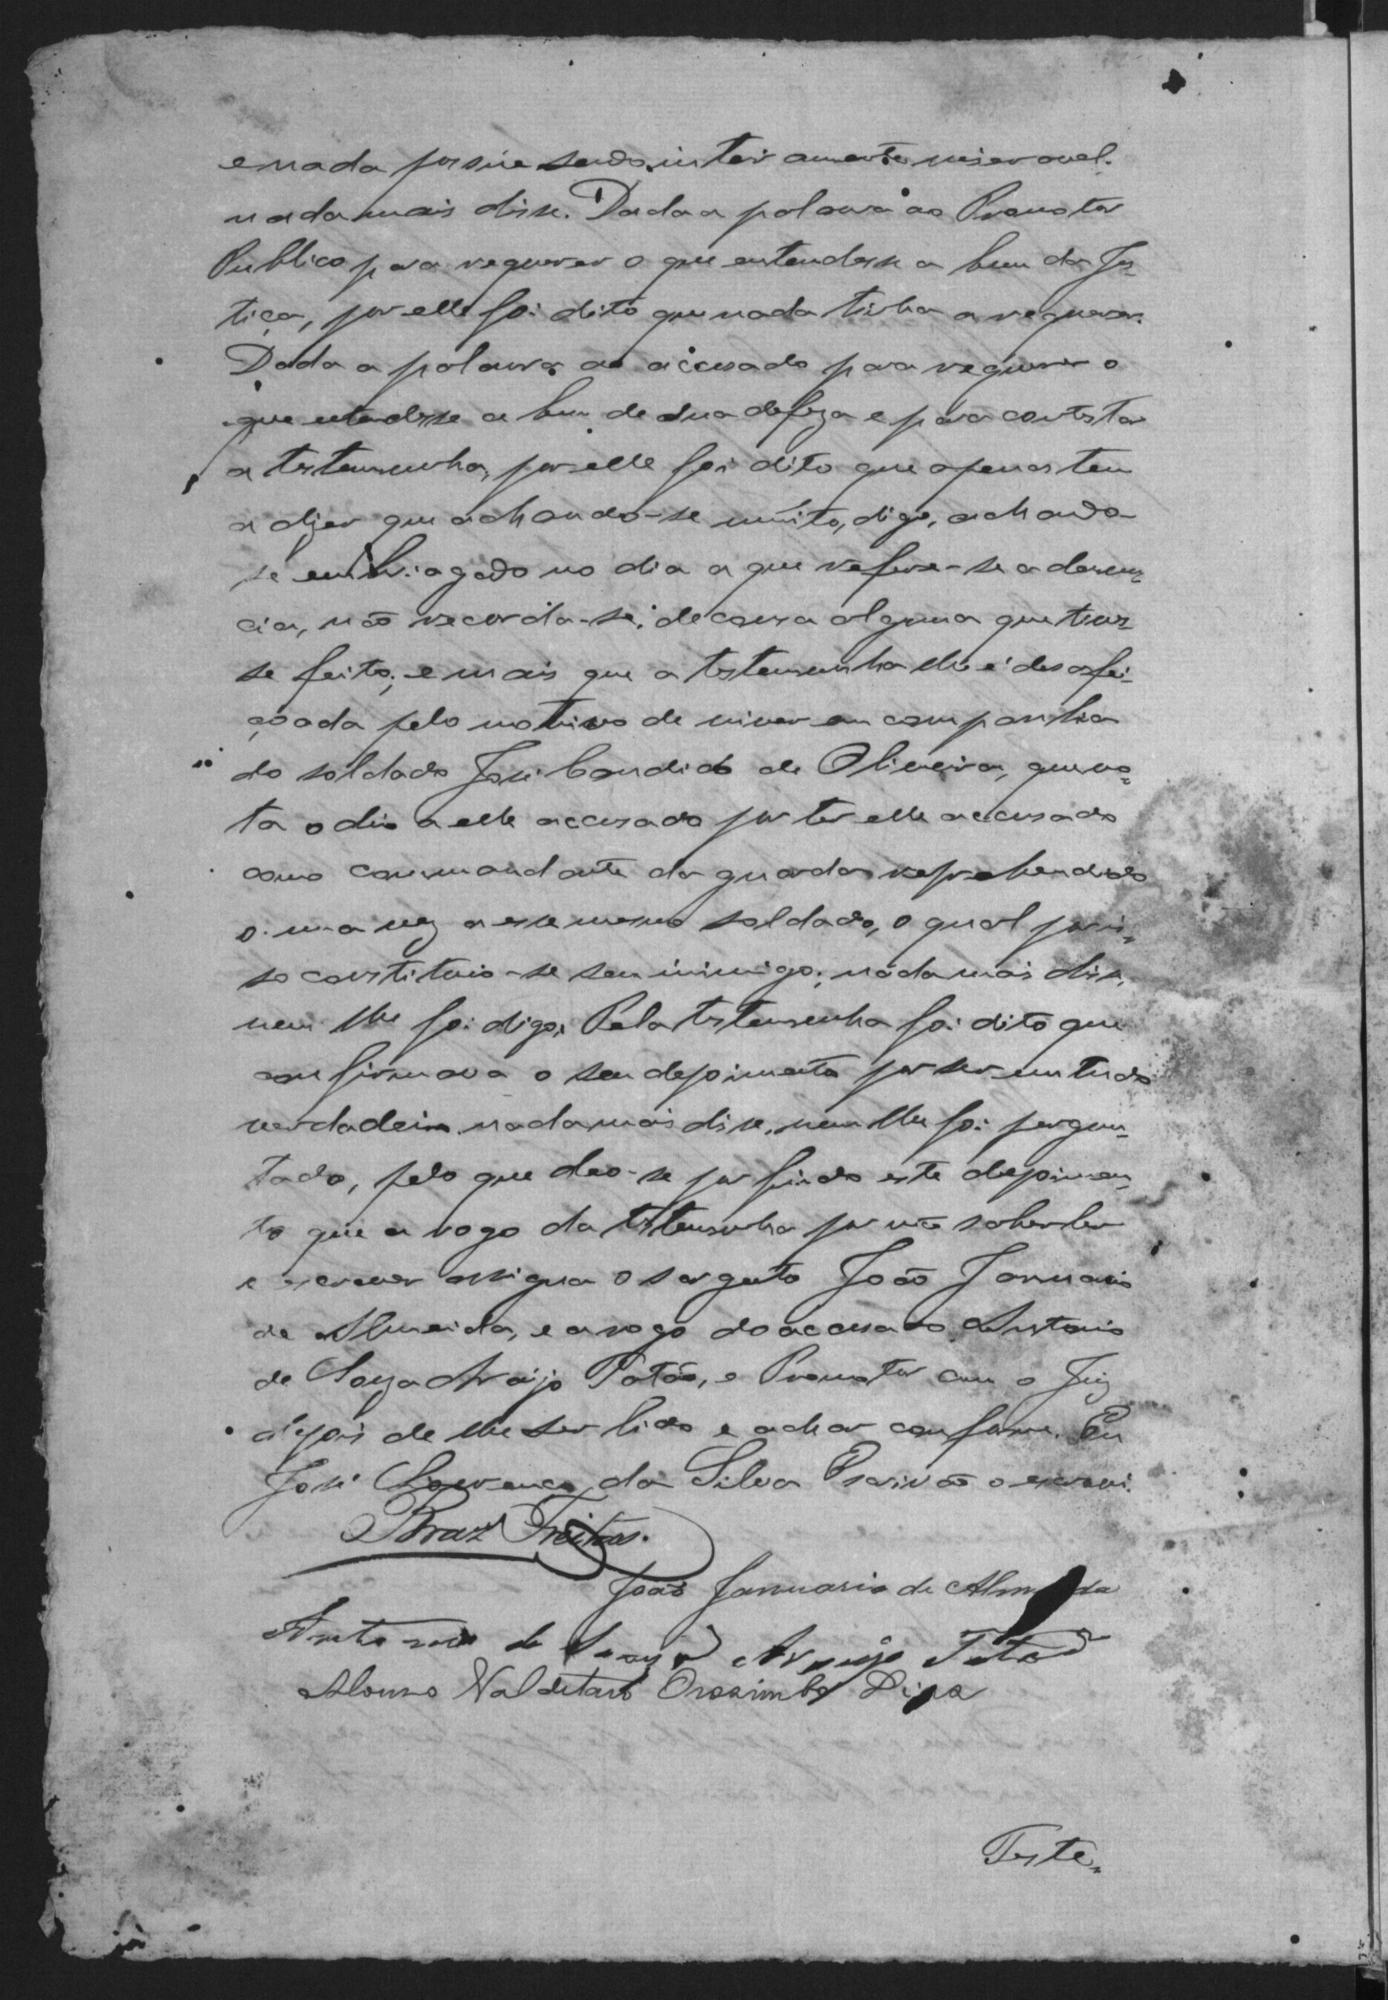 e nada possue sendo inteiramente miseravel.
nada mais disse. Dada a palavra ao Promotor
Publico para requerer o que entendesse a bem da Jus-
tiça, por elle foi dito que nada tinha a requerer.
Dada a palavra ao accusado para requerer o
que entendesse a bem de sua defeza e para contestar
a testemunha, por elle foi dito que apenas tem
a dizer que achando-se muito, digo, achando
se embriagado no dia a que refere-se a denun-
cia, não recorda-se de cousa alguma que tives-
se feito; e mais que a testemunha lhe é desafei-
çoada pelo motivo de viver em companhia
do soldado José Candido de Oliveira, que vo-
ta odio a elle accusado por ter elle accusado
como commandante da guarda reprehendido
uma vez a esse mesmo soldado, o qual por is-
so constituio-se seu inimigo; nada mais disse,
nem lhe foi digo, Pela testemunha foi dito que
confirmava o seu depoimento por ser em tudo
verdadeiro nada mais disse, nem lhe foi pergun-
tado, pelo que deo-se por findo este depoimen-
to que a rogo da testemunha por não saber ler
e escrever assigna o sargento João Januario
de Almeida, e a rogo do accusado Antonio
de Souza Araujo Tatão, e Promotor com o Juiz
depois de lhe ser lido e achar conforme. Eu
José Lourenço da Silva Escrivão o escrevi.
Braz Freitas.
João Januario de Almeida
Antonio de Souza Araujo Tatão
Alonso Valdetaro Orozimbo
Teste-